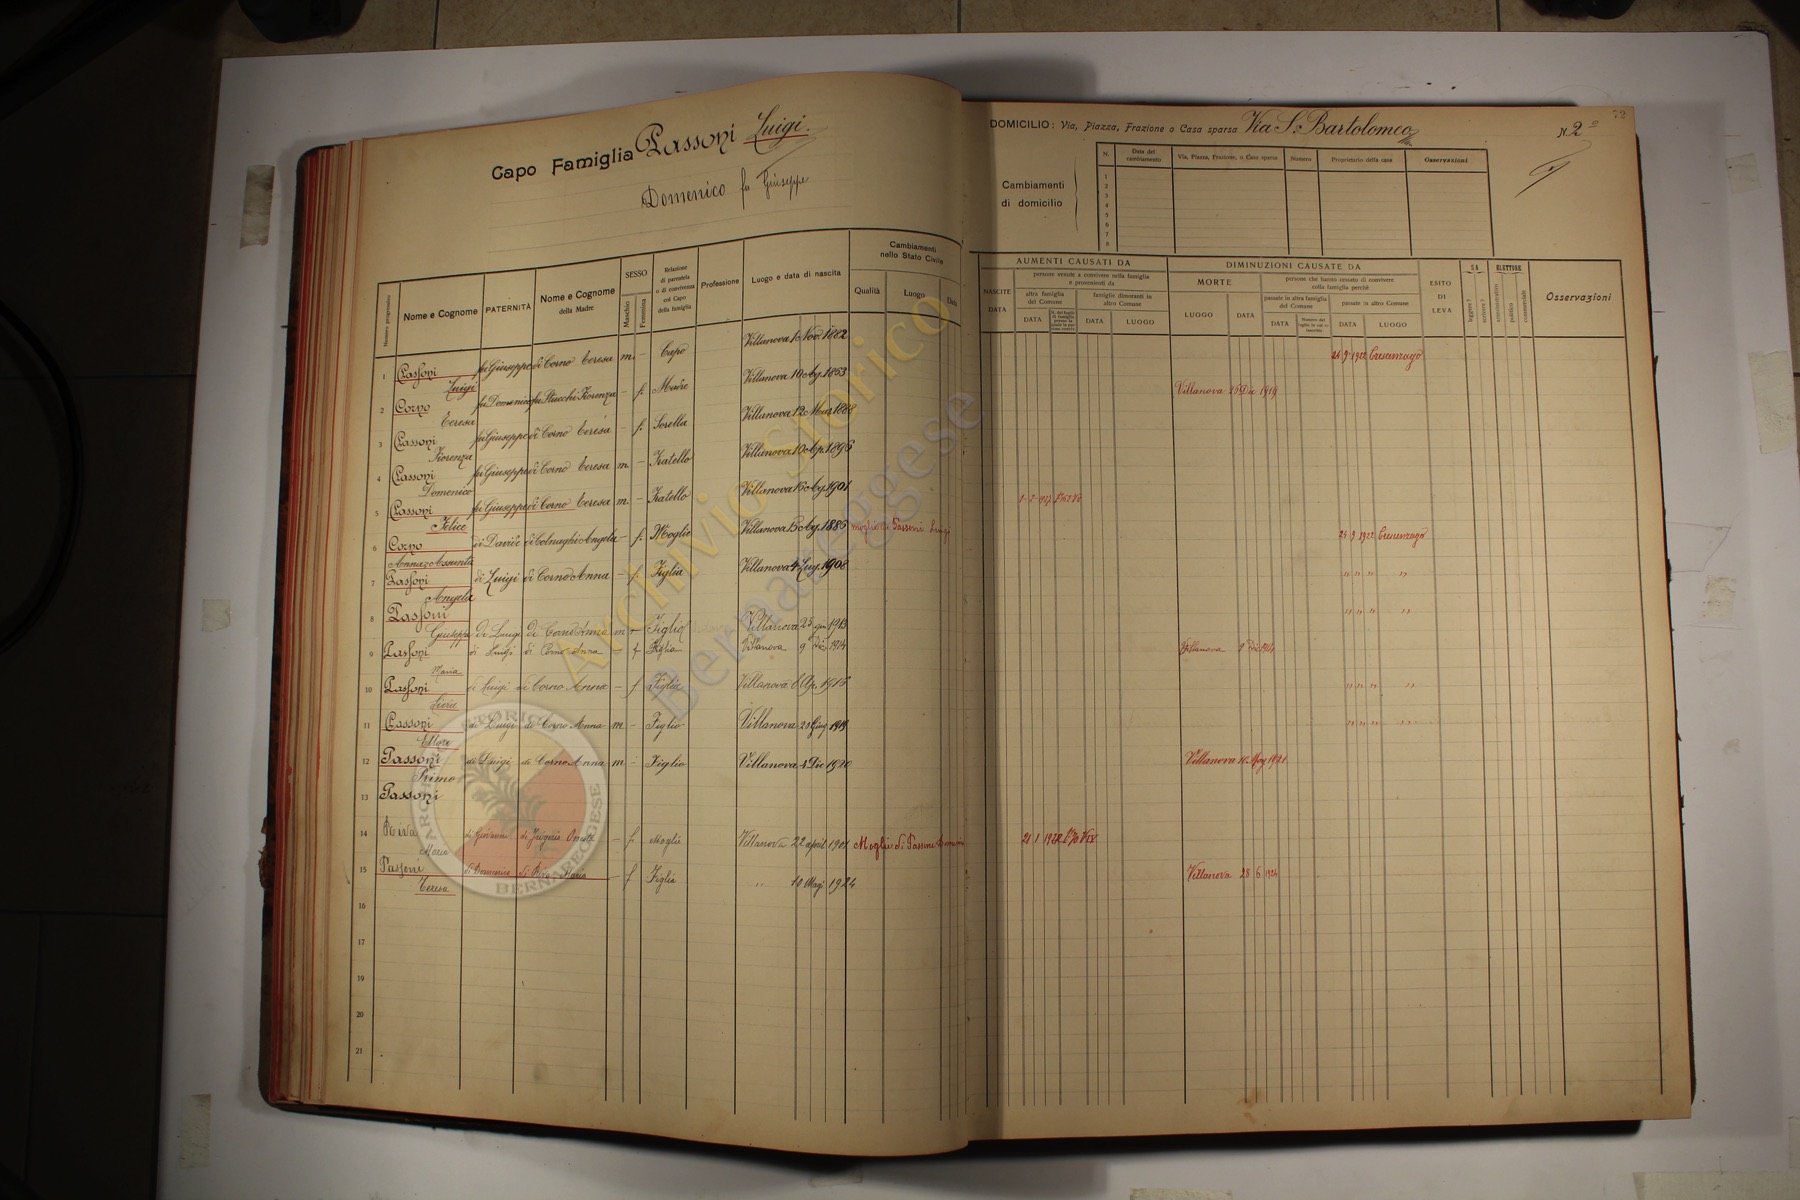 Capo Famiglia Passoni Luigi.
Domenico fu Giuseppe
Numero progressivo
Nome e Cognome
PATERNITÀ
Nome e Cognome della Madre
SESSO
Maschio
Femmina
Relazione di parentela o di convivenza col Capo della famiglia
Professione
Luogo e data di nascita
Cambiamenti nello Stato Civile
Qualità
Luogo
Data
1 Passoni Luigi fu Giuseppe di Corno Teresa m. - Capo Villanova 1 Nov. 1882
2 Corno Teresa fu Domenico fu Stucchi Fiorenza - f. Madre Villanova 10 Ag. 1853
3 Passoni Fiorenza fu Giuseppe di Corno Teresa - f. Sorella Villanova 12 Mar. 1888
4 Passoni Domenico fu Giuseppe di Corno Teresa m. - Fratello Villanova 10 Ap. 1896
5 Passoni Felice fu Giuseppe di Corno Teresa m - Fratello Villanova 16 Ag. 1901
6 Corno Anna Assunta di Davide di Colnaghi Angela - f. Moglie Villanova 15 Ag. 1886 moglie di Passoni Luigi
7 Passoni Angela di Luigi di Corno Anna - f. Figlia Villanova 4 Lug. 1908
8 Passoni Giuseppe di Luigi di Corno Anna m - Figlio Villanova 25 1913
9 Passoni Maria di Luigi di Corno Anna f Figlia Villanova 9 Dic. 1914
10 Passoni di Luigi di Corno Anna - f Figlia Villanova 6 Ap.
11 Passoni Ettore di Luigi di Corno Anna m - Figlio Villanova 23 Giug
12 Passoni Primo di Luigi di Corno Anna m - Figlio Villanova 4 Dic 1920
13 Passoni
14 Riva Maria di Giovanni di - f. Moglie Villanova 22 april 1901 Moglie di Passoni Domenico
15 Passoni Teresa di Domenico di Riva Maria f Figlia " 10 Mag 1924
16
17
18
19
20
21
72
DOMICILIO: Via, Piazza, Frazione o Casa sparsa Via S. Bartolomeo N. 2
Cambiamenti di domicilio
N.
Data del cambiamento
Via, Piazza, Frazione, o Casa sparsa
Numero
Proprietario della casa
Osservazioni
1
2
3
4
5
6
7
8
AUMENTI CAUSATI DA
NASCITE
DATA
persone venute a convivere nella famiglia e provenienti da
altra famiglia del Comune
DATA
famiglie dimoranti in altro Comune
DATA
LUOGO
DIMINUZIONI CAUSATE DA
MORTE
LUOGO
DATA
persone che hanno cessato di convivere colla famiglia perchè
passate in altra famiglia del Comune
DATA
passate in altro Comune
DATA
LUOGO
ESITO DI LEVA
SA
leggere?
scrivere?
ELETTORE
amministrativo
politico
commerciale
Osservazioni
Villanova 25 Dic 1919
26 9 1922
" " " "
" " " "
Villanova 9 Dic 1914
" " " "
" " " "
Villanova 1921
21 1 1922
Villanova 28 6 1924
Archivio Storico
Bernareggese
ARCHIVIO STORICO BERNAREGGESE